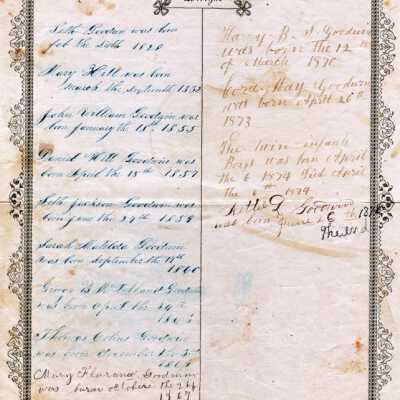 Seth Goodwin was born
feb the 20th 1828
Mary Hill was born
march the seventh 1832
John William Goodwin was
born January the 18th 1855
Daniel Hill Goodwin was
born April the 18th 1857
Seth Jackson Goodwin was
born June the 29th 1858
Sarah Matilda Goodwin
was born September the 11th
1860
Goodwin
was born April the
Thomas Goodwin
was born November the
Mary Florance Goodwin
was born octobere the 24
1867
Harvy B. Goodwin
was born the 12
of March 1870
Cora May Goodwin
was born April 26th
1873
The twin infants
Boys was born April
the 6 1874 Died April
the 6th 1874
Goodwin
was born June 6 the